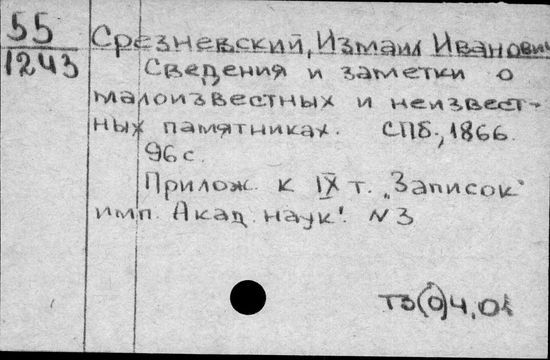 55
1243
Срезневский, Измаил Иванович
Сведения и заметки о
малоизвестных и неизвест-
ных памятниках. СПб., 1866.
96 с.
Прилож. к IX т. „Записок
имп. Акад. наук". N 3